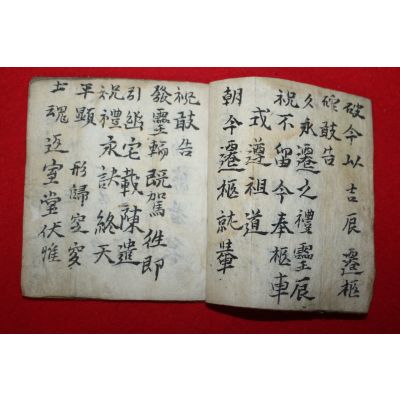 今以吉辰遷柩
敢告
永遷之禮靈辰
祝不留今奉柩車
式遵祖道
朝今遷柩就轝
祝敢告
發靈輀旣駕徃即
引幽宅載陳遣
祝禮永訣終天
平 形歸窀穸
土魂返室堂伏惟